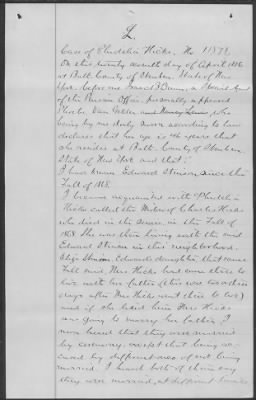 L.
Case of Philelia Hicks, No 11573,
On this twenty seventh day of April 1886
at Bath County of Steuben, State of New
York before me a Special Agent
of the Pension Office, personally appeared
Phoebe Van Gelder who
being by me duly sworn according to law
declares that her age is years that
she resides at Bath County of Steuben
State of New York and that:
I have known Edward Stinson since the
Fall of 1868.
I became acquainted with "Philelia
Hicks called the Widow of Charles Hicks
who died in the Army, in the Fall of
1868. She was then living with the said
Edward Stinson in this neighborhood.
Stinson, Edwards daughter that same
Fall said Mrs Hicks had come there to
live with her father (this was two or three
days after Mrs Hicks went there to live)
and if she had her Mrs Hicks
was going to marry her father. I
now heard that they were married
by ceremony, except that being ac-
cused by different ones of not being
married. I heard both of them say
they were married, at different times